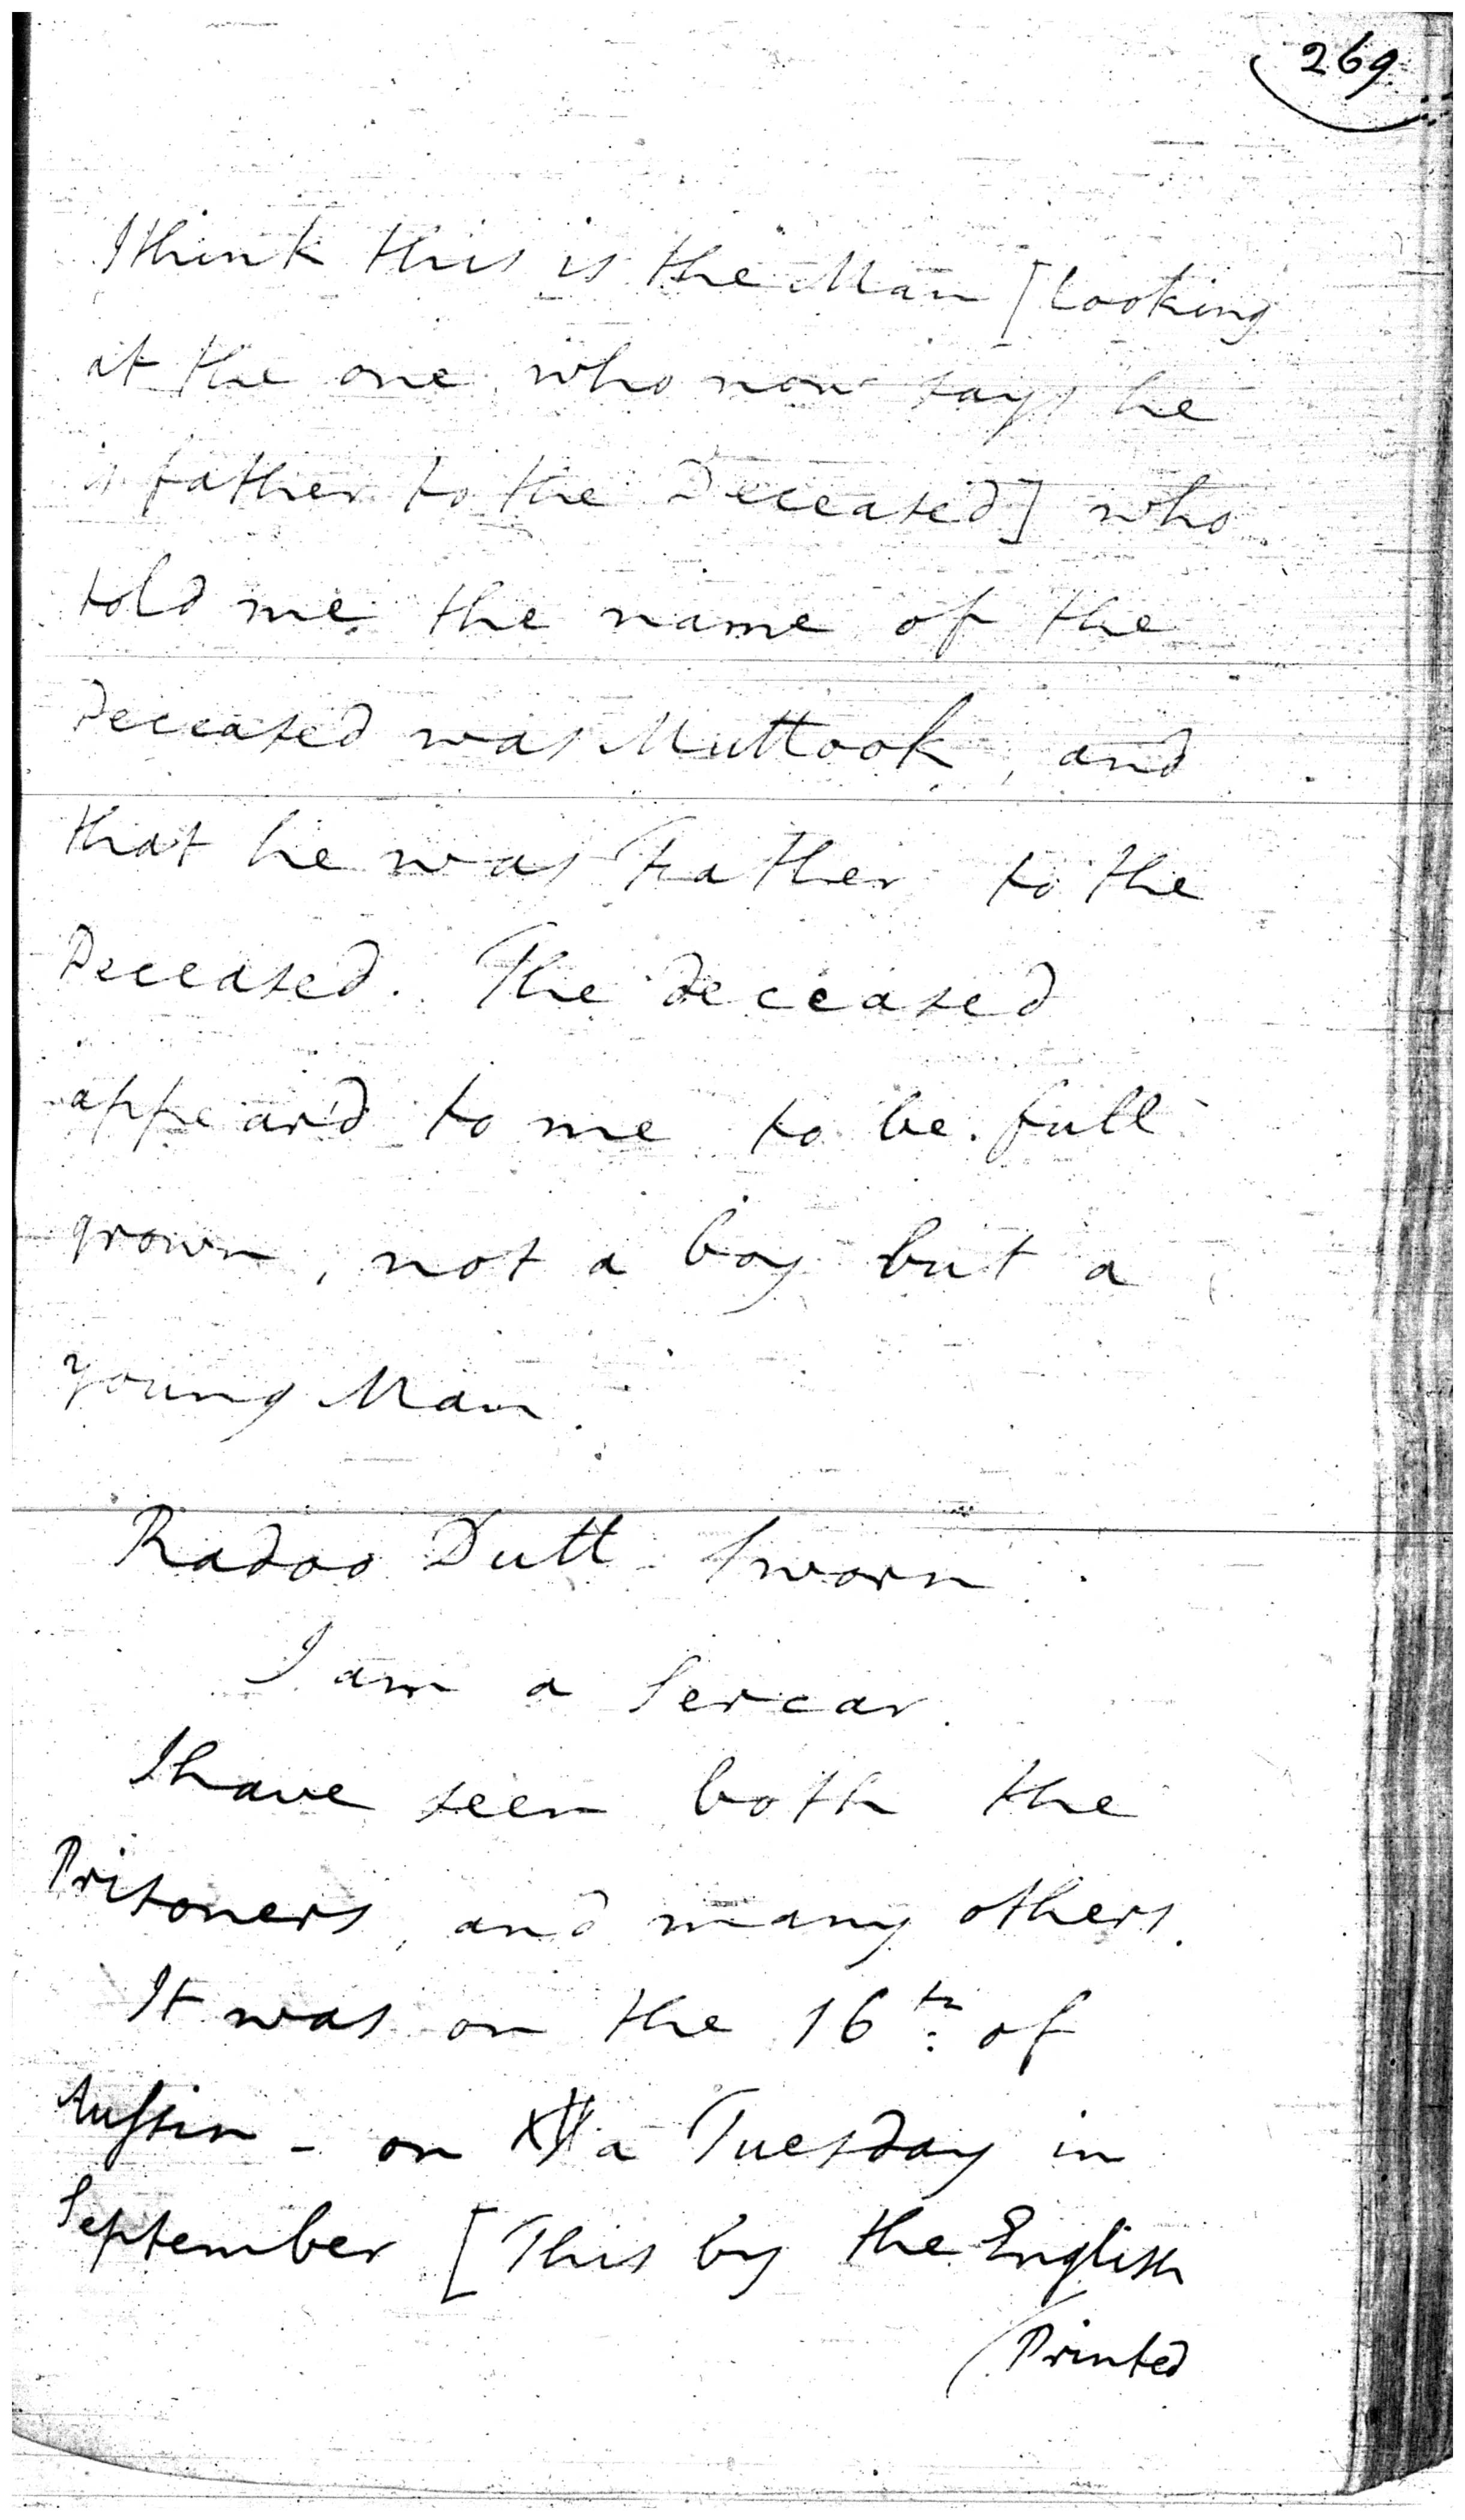 269
I think this is the Man [looking
at the one who now says he
is father to the Deceased] who
told me the name of the
Deceased was Muttook, and
that he was Father to the
Deceased. The deceased
appear'd to me to be full
grown, not a boy but a
young Man.
Radoo Dutt Sworn.
I am a Sercar.
I have seen both the
Prisoners, and many others.
It was on the 16th. of
Aussin - on a Tuesday in
September [This by the English
Printed